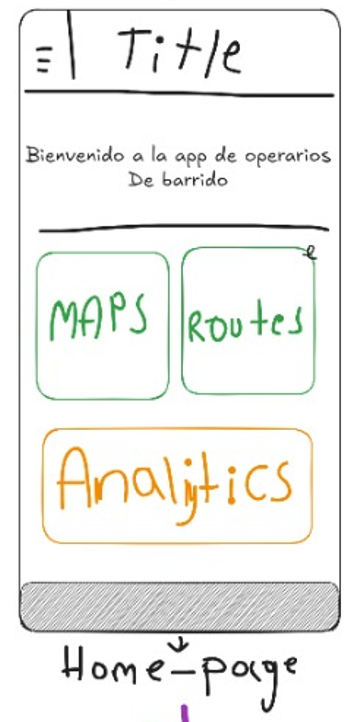 Title
Bienvenido a la app de operarios
De barrido
MAPS Routes
Analytics
Home-page